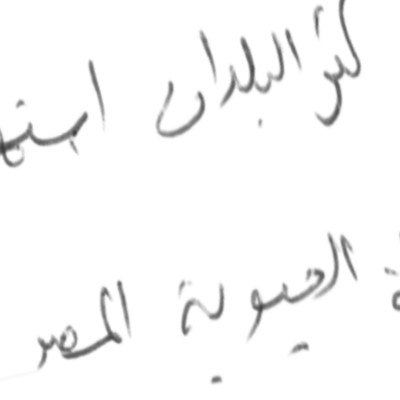 كثر البلدان استه
الحيوية المصر